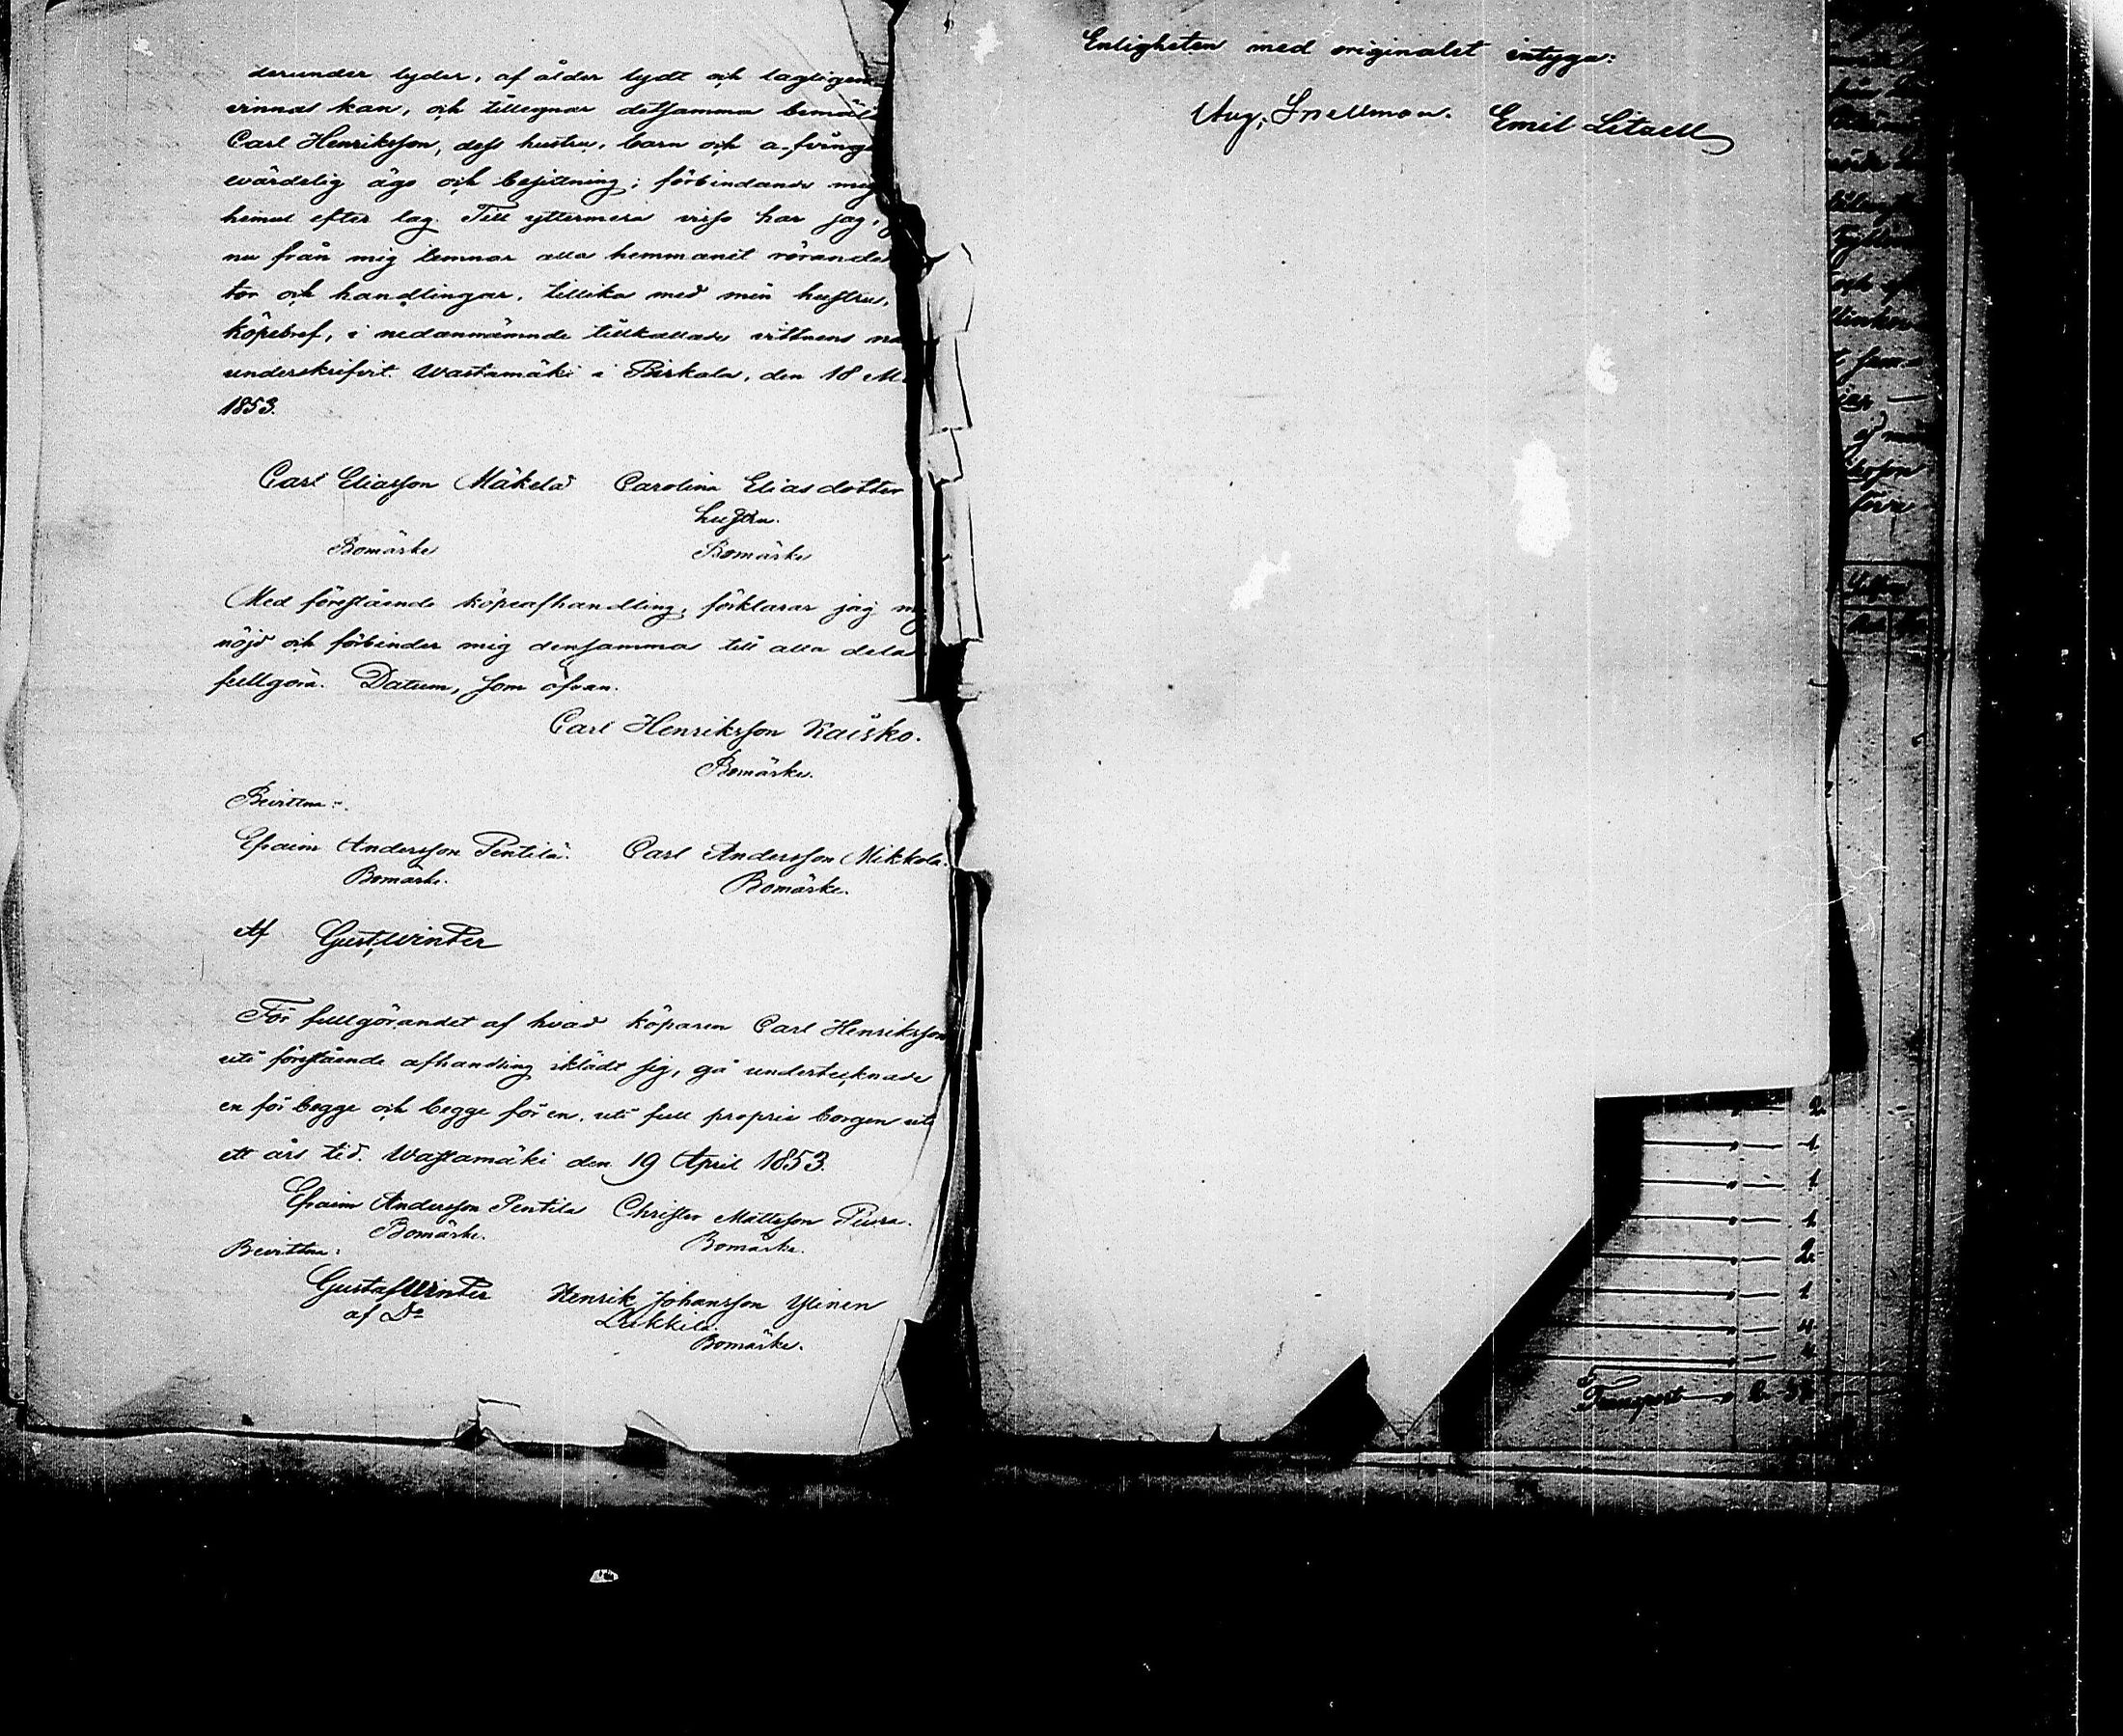 derunder lyder, af ålder lydt och lagligen
vinnas kan, och tillegnar detsamma bemäl
Carl Henriksson, dess hustru, barn och a-fvinge
evärdelig ägo och besittning; förbindande mig
hemul efter lag. Till yttermera visso har jag,
nu från mig lemnar alla hemmanet rörande
tor och handlingar, tillika med min hustru,
köpebref, i nedannämnde tillkallade vittnens na
underskrifvit. Wastamäki i Birkala, den 18 M
1853.
Carl Eliasson Mäkelä Carolina Eliasdotter
hustru.
Bomärke Bomärke
Med förestående köpeafhandling, förklarar jag mig
nöjd och förbinder mig densamma till alla delar
fullgöra. Datum, som ofvan.
Carl Henriksson Kaisko.
Bomärke.
Bevittna:
Efraim Andersson Pentilä. Carl Andersson Mikkola.
Bomärke. Bomärke.
Af Gust. Winter
För fullgörandet af hvad köparen Carl Henriksson
uti förestående afhandling iklädt sig, gå undertecknade
en för begge och begge för en, uti full proprie borgen uti
ett års tid. Wastamäki den 19 April 1853.
Efraim Andersson Pentilä Christer Mattsson Pursa.
Bomärke. Bomärke.
Bevittna:
Gustaf Winter Henrik Johansson Ylinen
af Do Lukkila.
Bomärke.
Enligheten med originalet intyga:
Aug. Snellman. Emil Litzell
2
1
1
1
2
1
4
4
Transport